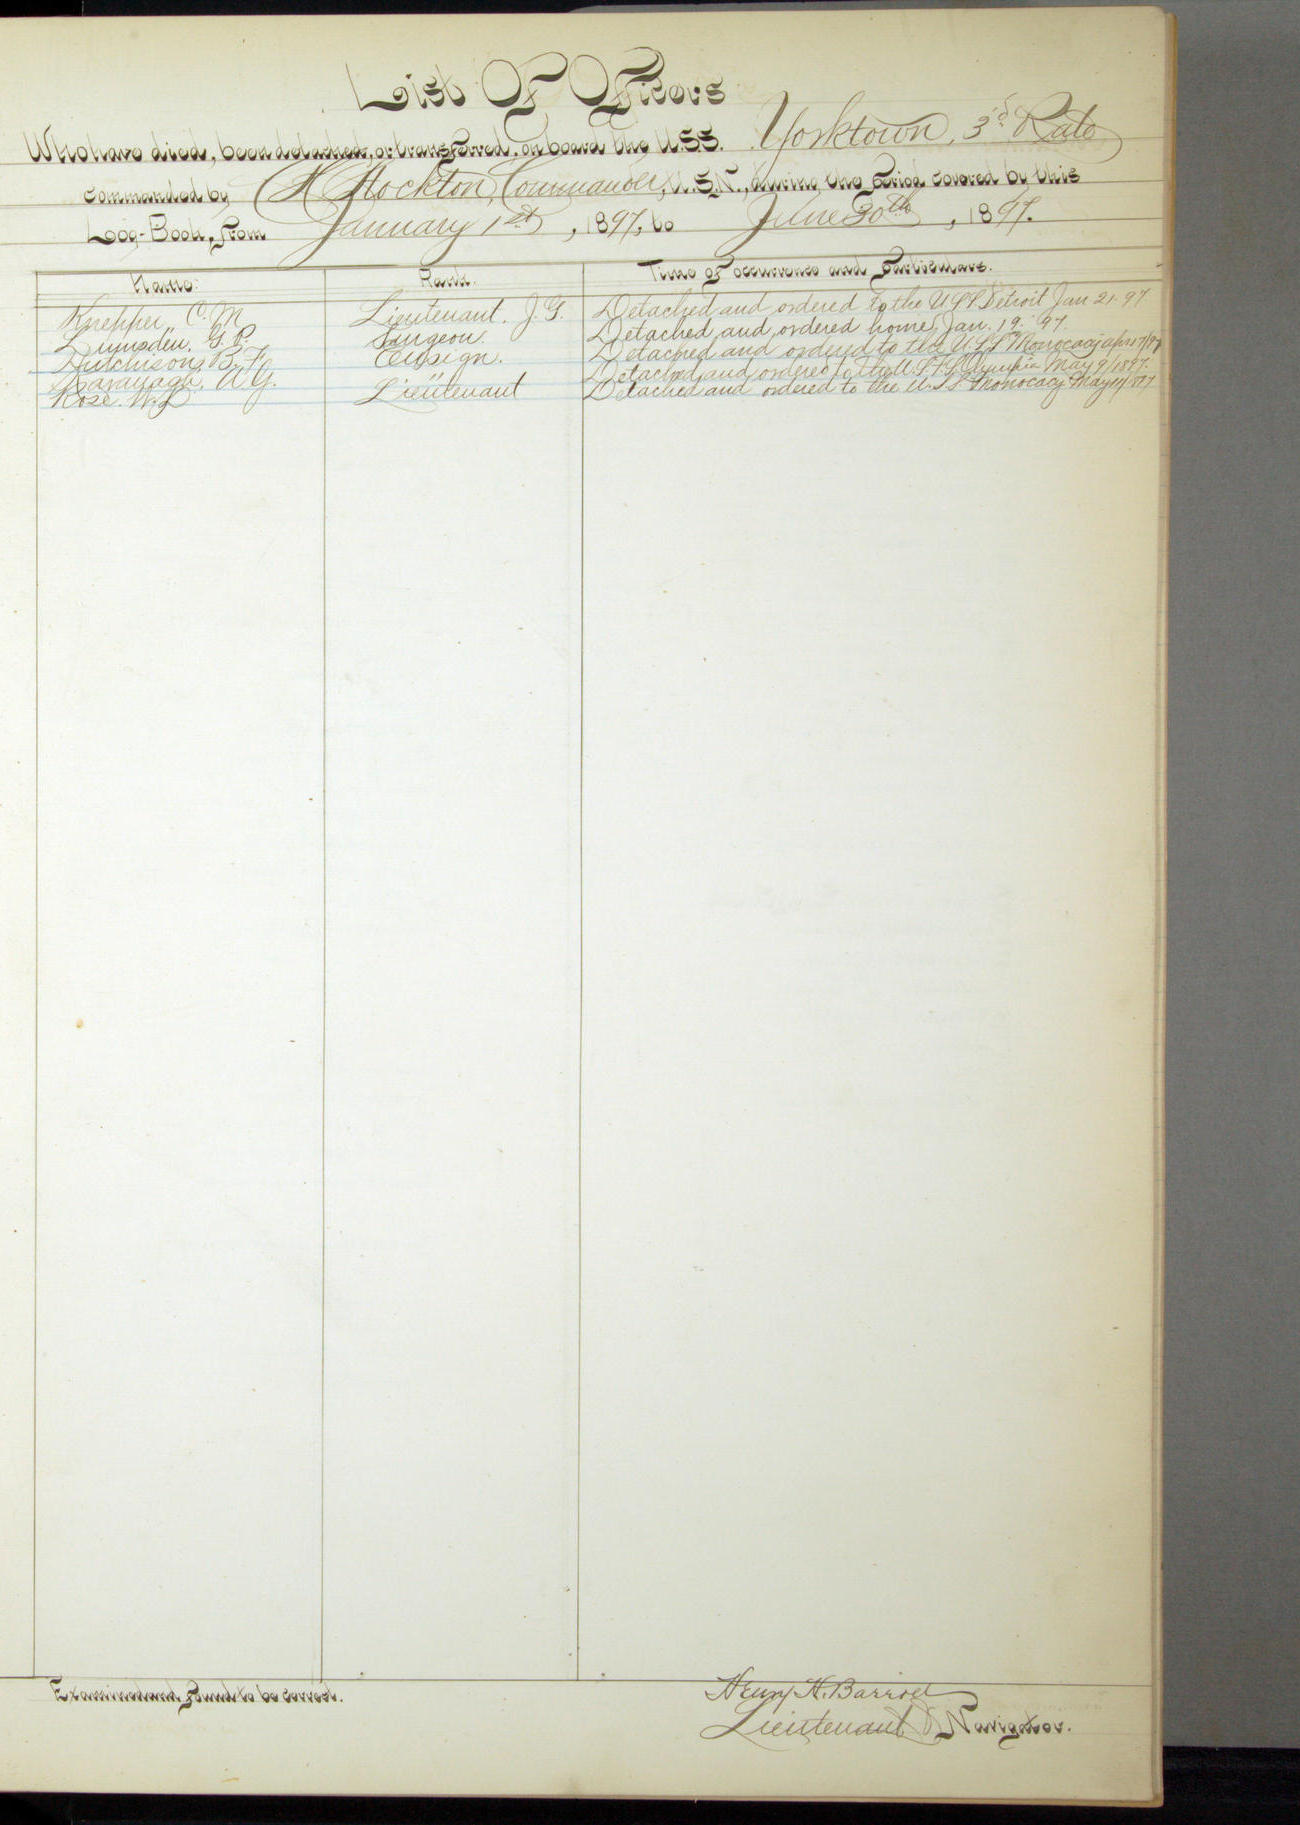 List Of Officers
Who have died, been detached, or transferred, on board the U.S.S. Yorktown, 3d Rate
commanded by H Stockton, Commander, U.S.N., during the Period covered by this
Log-Book, from January 1st, 1897, to June 30th, 1897.
Name: Rank. Time of occurrence and Particulars.
Knepper, C. M Lieutenant. J. G. Detached and ordered to the U.S.S. Detroit Jan 21. 97
Lumsden, G. P. Surgeon. Detached and ordered home, Jan. 19. 97.
Hutchison, B. F. Ensign. Detached and ordered to the U.S.S Monocacy
Kavanagh, A G. " Detached and ordered to the U.S.F.S. Olympia May 9/1897.
Rose. W. D Lieutenant Detached and ordered to the U.S.S Monocacy May
Examined and found to be correct.
Henry H. Barroll
Lieutenant & Navigator.